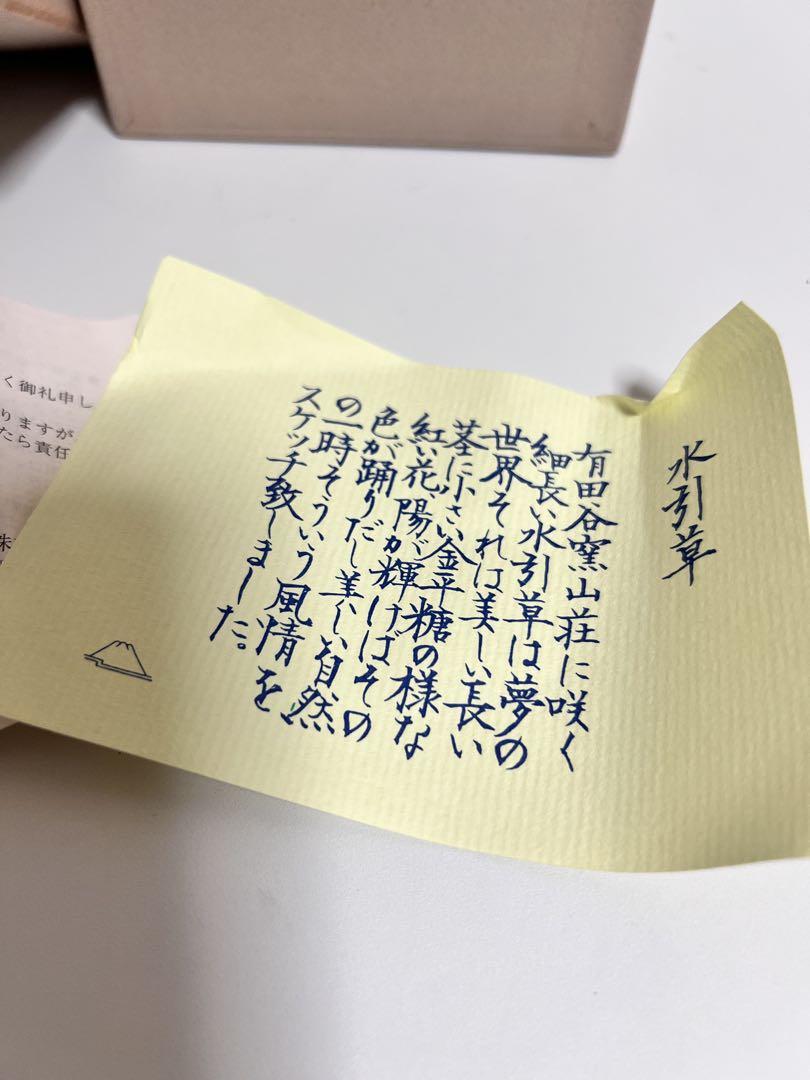 水引草
有田谷窯山荘に咲く
細長い水引草は夢の
世界それは美しい長い
茎に小さい金平糖の様な
紅い花、陽が輝けばその
色が踊りだし美しい自然
の一時そういう風情を
スケッチ致しました。
く御礼申し
りますが
たら責任
株